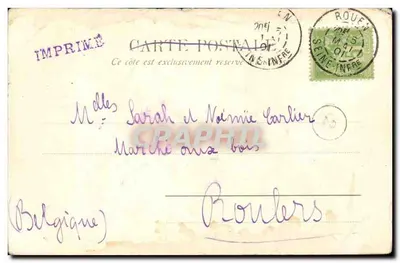 IMPRIMÉ
CARTE POSTALE
Ce côté est exclusivement réservé
ROUEN
SEINE-INFRE
Mdlles Sarah et Noémie Carlier
Marché aux bois
Roulers
(Belgique)